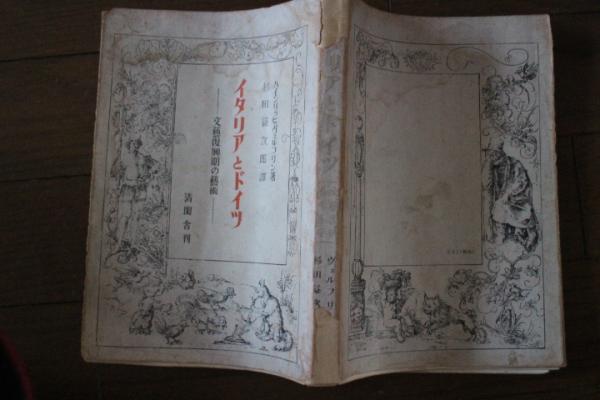 ハインリッヒ・ヴェルフリン著
杉田益次郎譯
イタリアとドイツ
文藝復興期の藝術
清閑舎刊
リアとドイツ
ヴェルフリ
杉田益次